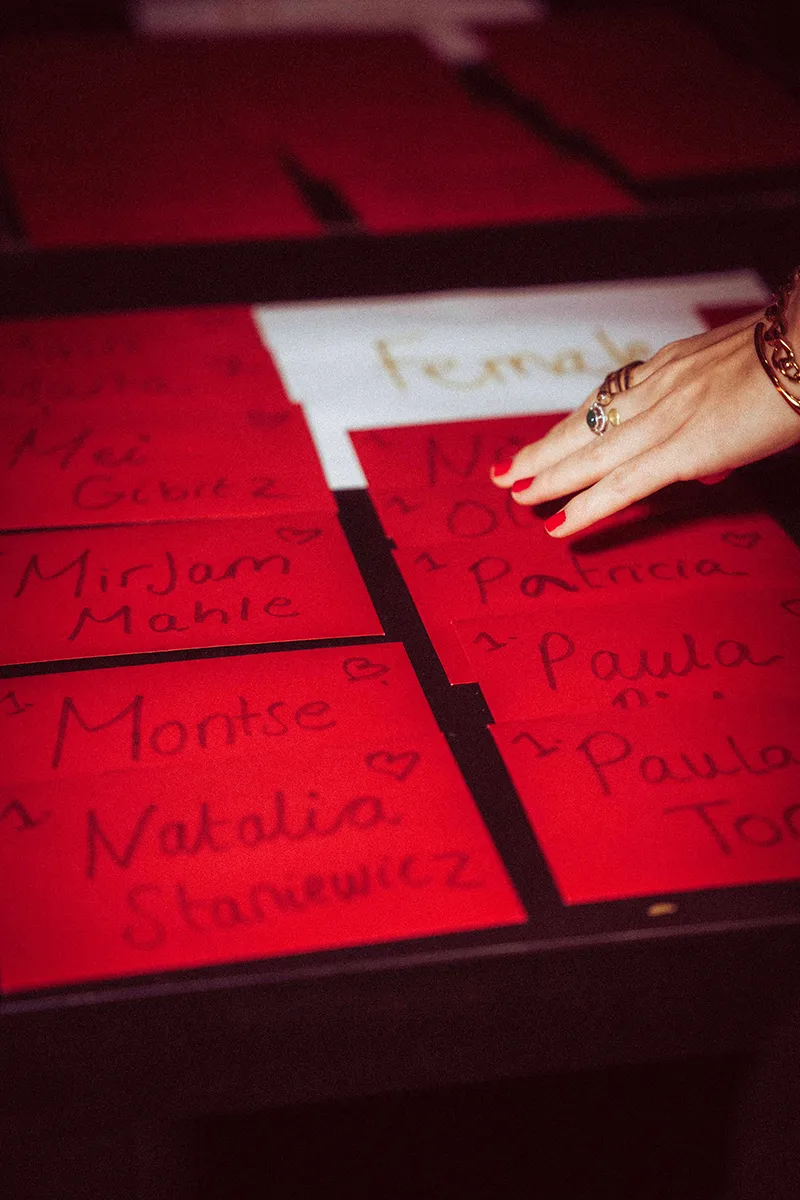 Female
Mei
Gibitz
Mirjam
Mahle
1. Montse
1. Natalia
Staniewicz
1. Patricia
1. Paula
1. Paula